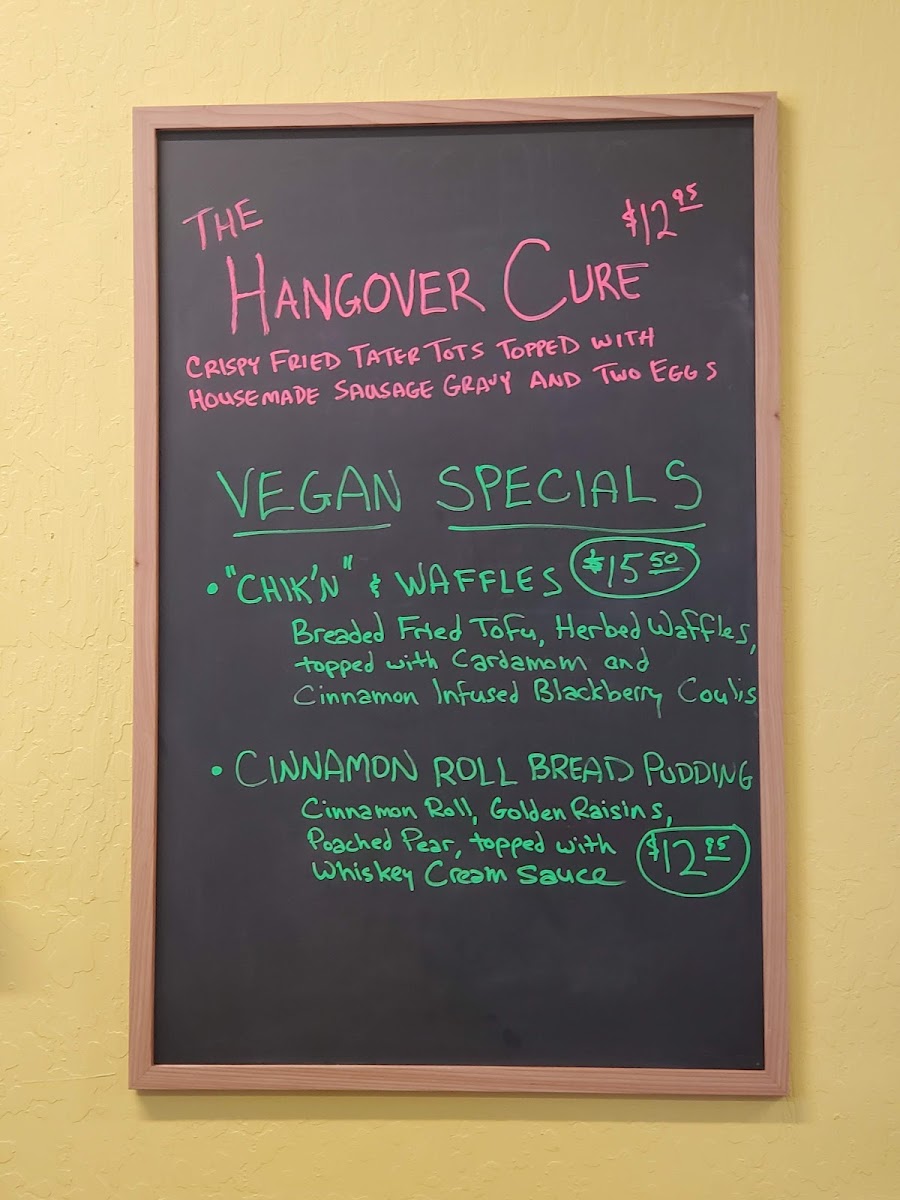 THE
$12.95
HANGOVER CURE
CRISPY FRIED TATER TOTS TOPPED WITH
HOUSEMADE SAUSAGE GRAVY AND TWO EGGS
VEGAN SPECIALS
• "CHIK'N" & WAFFLES $15.50
Breaded Fried Tofu, Herbed Waffles,
topped with Cardamom and
Cinnamon Infused Blackberry Coulis
• CINNAMON ROLL BREAD PUDDING
Cinnamon Roll, Golden Raisins,
Poached Pear, topped with
Whiskey Cream Sauce $12.95